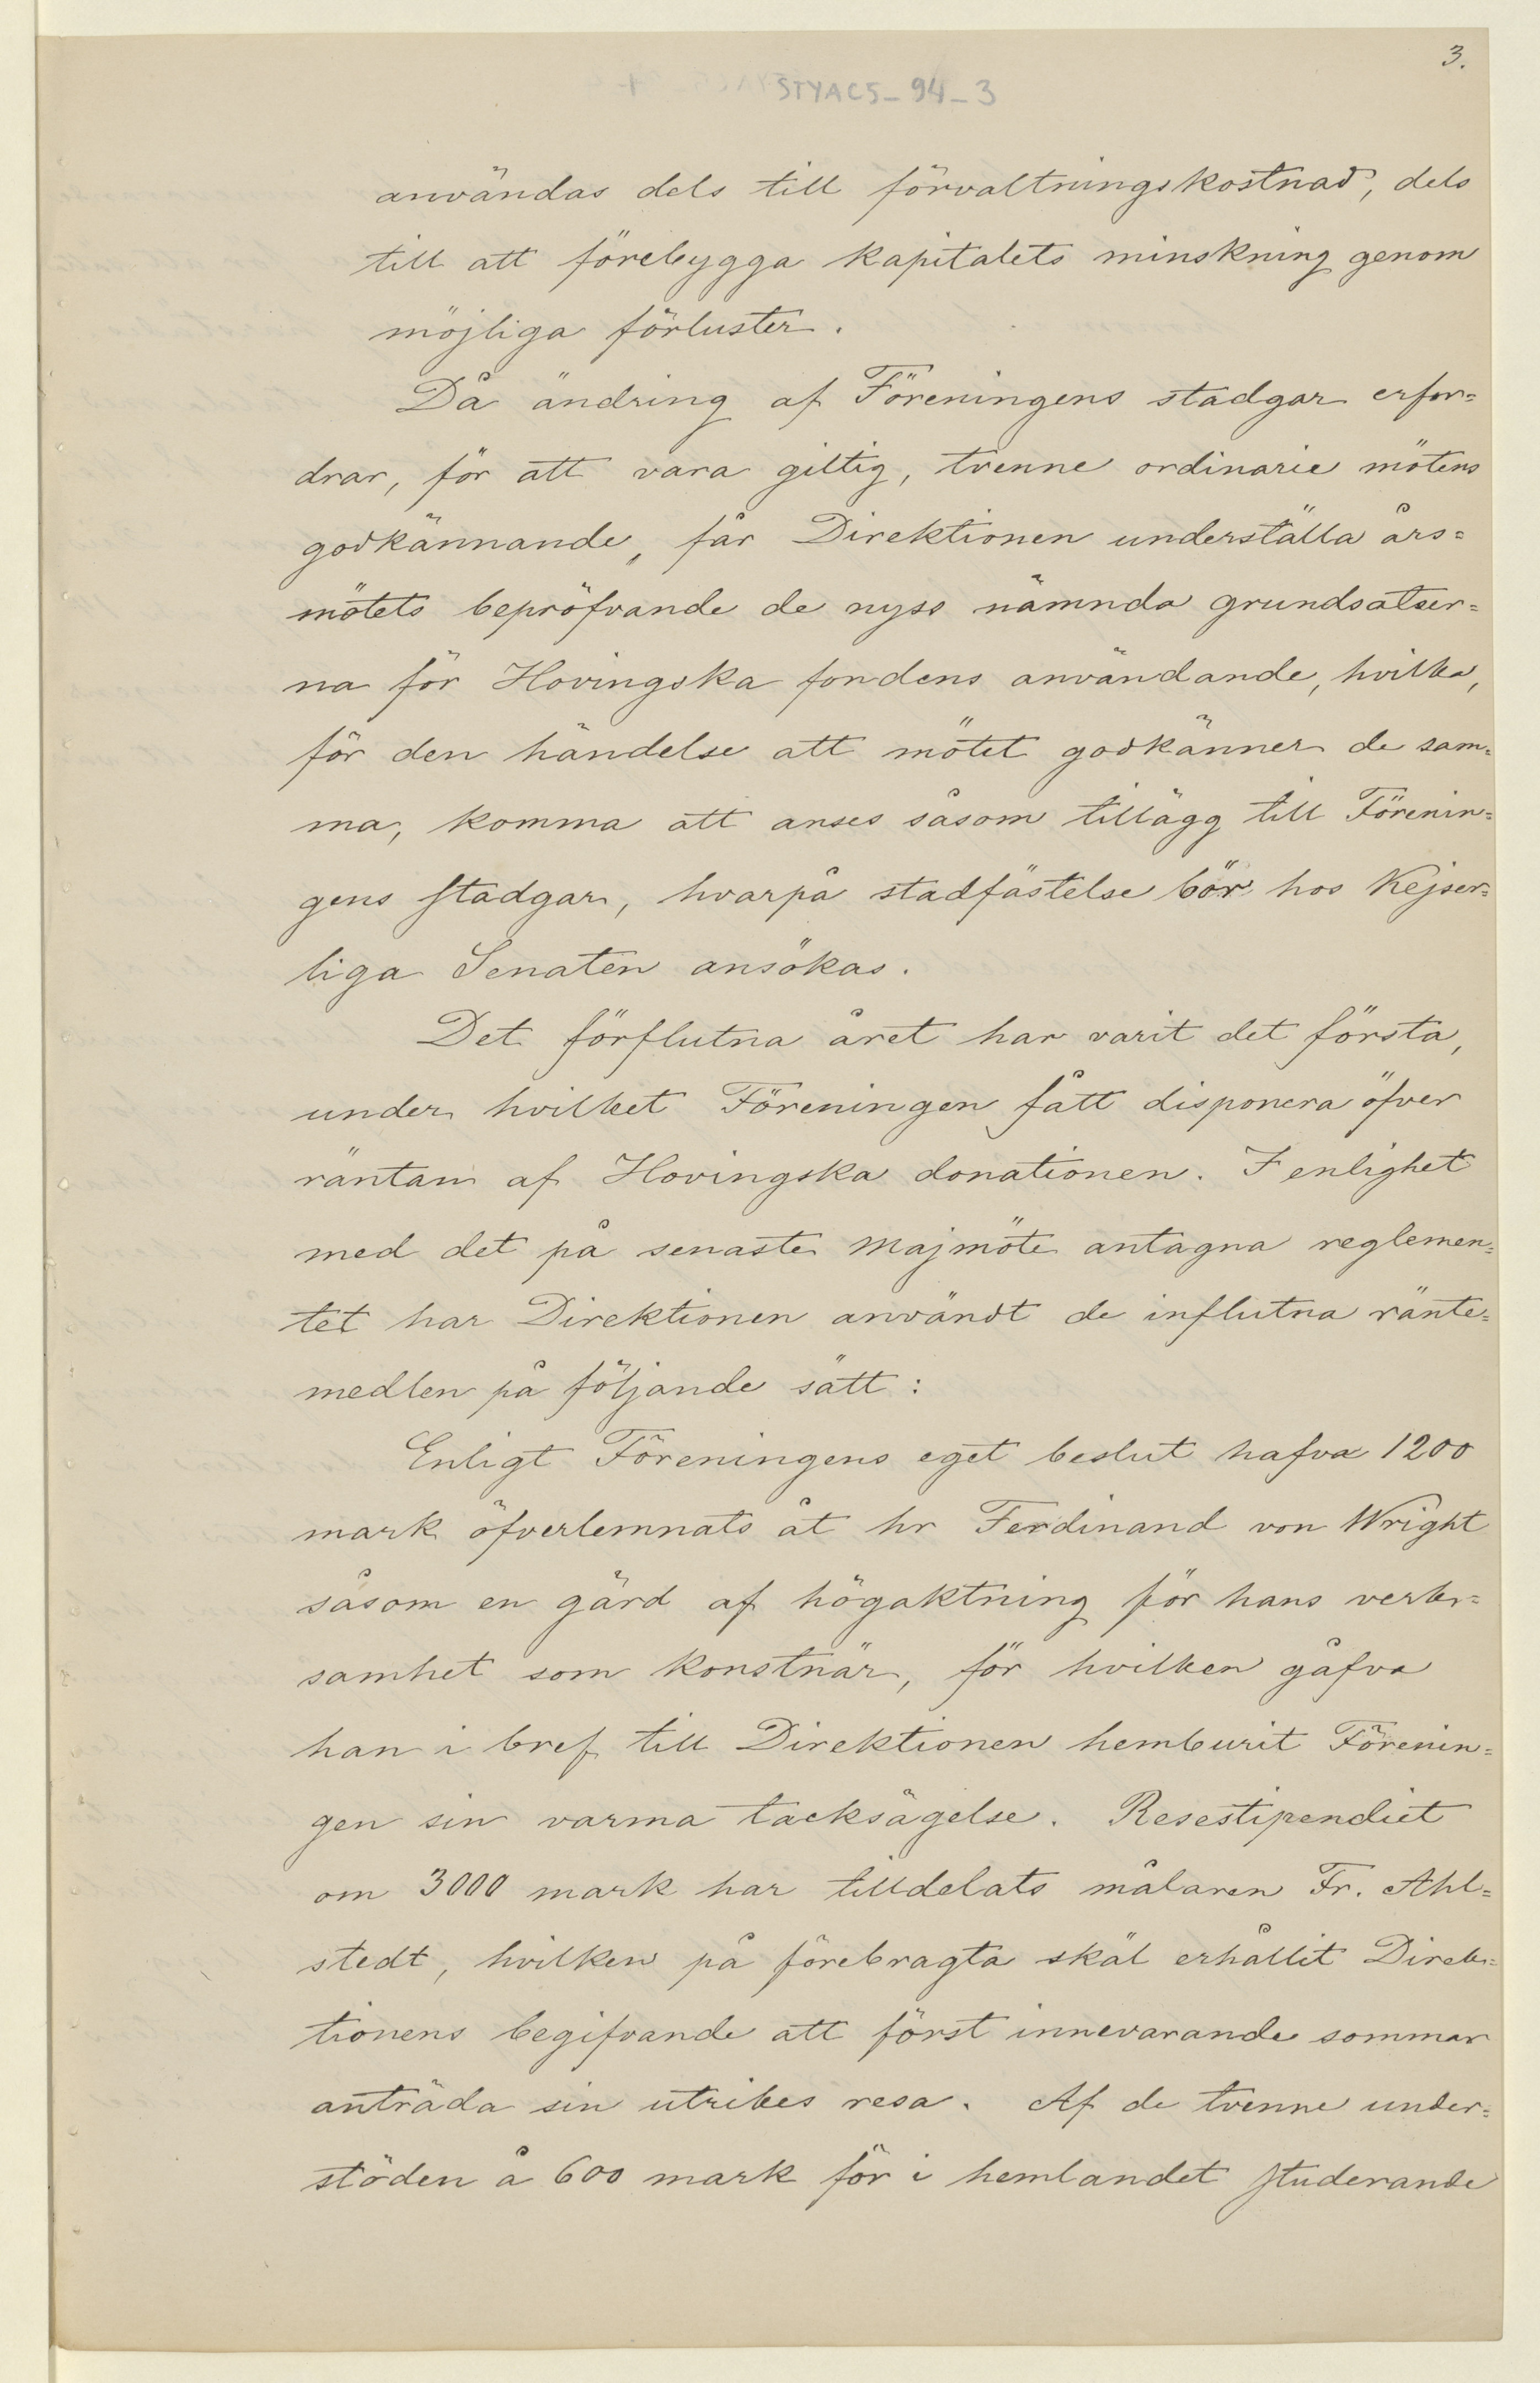 3.
STYACS-94-3
användas dels till förvaltningskostnad, dels
till att förebygga kapitalets minskning genom
möjliga förluster.
Då ändring af Föreningens stadgar erfor=
drar, för att vara giltig, tvenne ordinarie mötens
godkännande, får Direktionen underställa års=
mötets bepröfvande de nyss nämnda grundsatser=
na för Hovingska fondens användande, hvilka,
för den händelse att mötet godkänner de sam=
ma, komma att anses såsom tillägg till Förenin=
gens stadgar, hvarpå stadfästelse bör hos Kejser=
liga Senaten ansökas.
Det förflutna året har varit det första,
under hvilket Föreningen fått disponera öfver
räntan af Hovingska donationen. I enlighet
med det på senaste majmöte antagna reglemen=
tet har Direktionen användt de influtna ränte=
medlen på följande sätt:
Enligt Föreningens eget beslut hafva 1200
mark öfverlemnats åt hr Ferdinand von Wright
såsom en gärd af högaktning för hans verk=
samhet som konstnär, för hvilken gåfva
han i bref till Direktionen hemburit Förenin=
gen sin varma tacksägelse. Resestipendiet
om 3000 mark har tilldelats målaren Fr. Ahl=
stedt, hvilken på förebragta skäl erhållit Direk=
tionens begifvande att först innevarande sommar
anträda sin utrikes resa. Af de tvenne under=
stöden å 600 mark för i hemlandet studerande